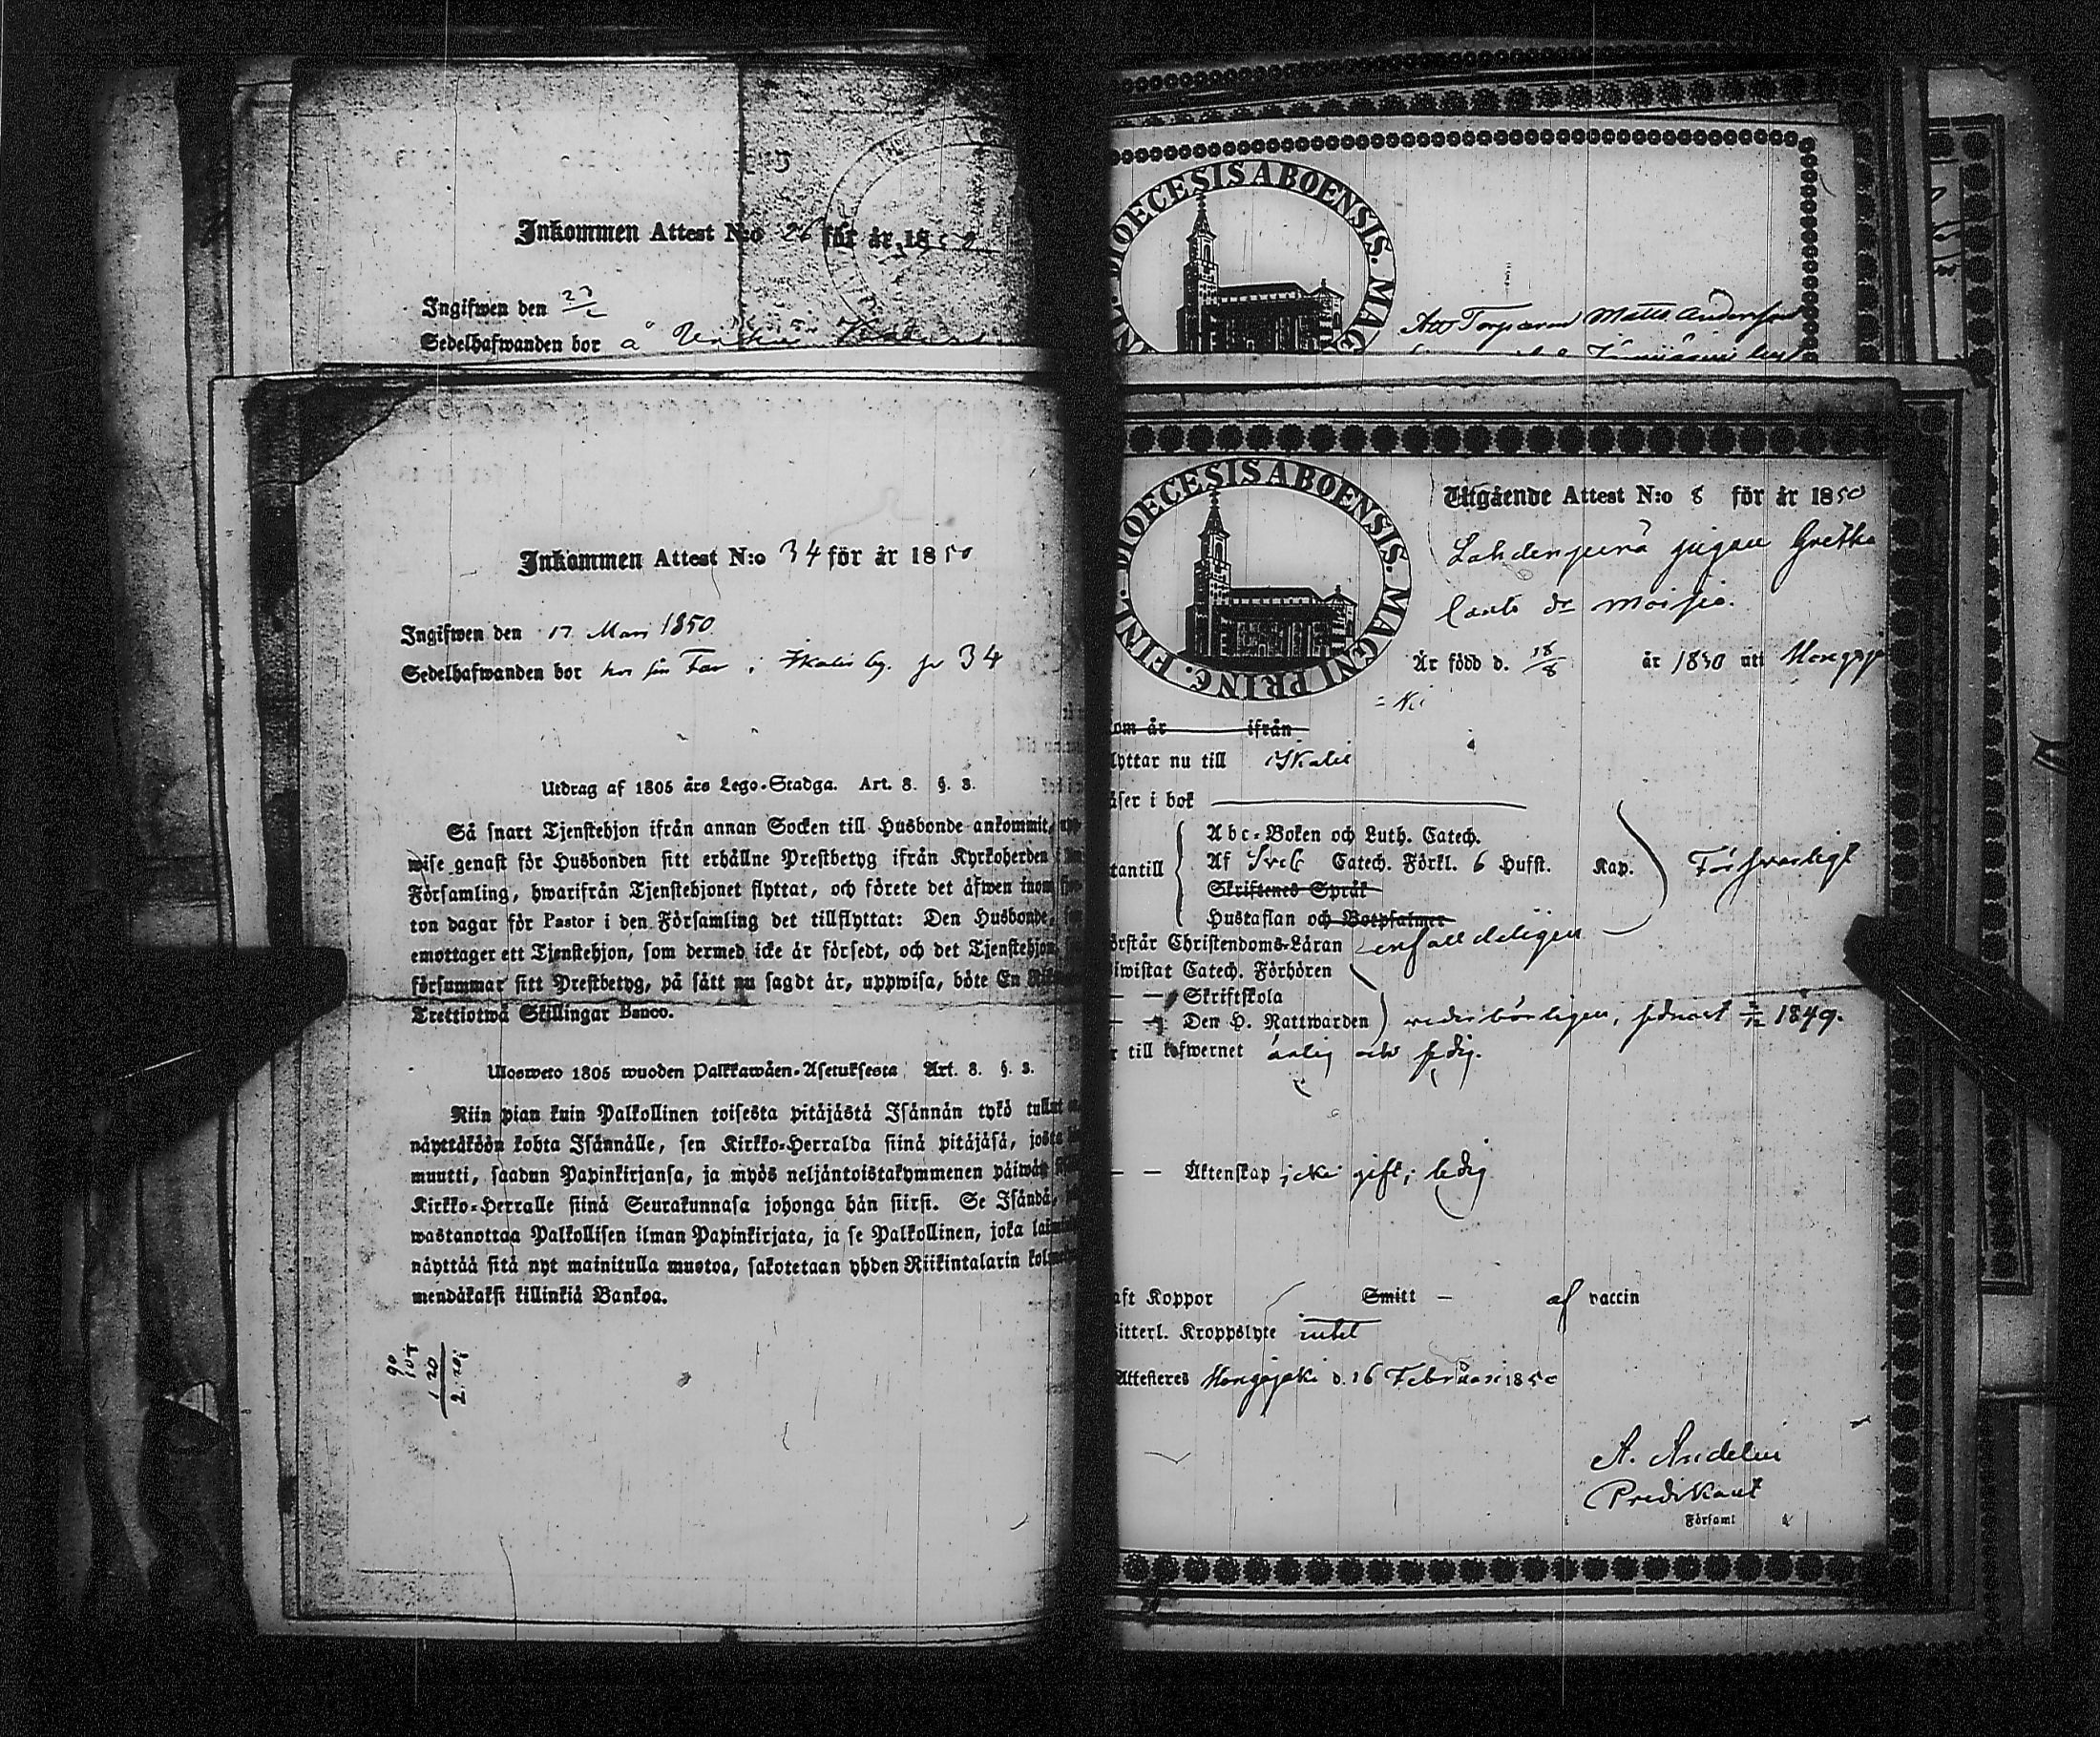 Inkommen Attest N:o 26 för år 1850
Ingifwen den
Sedelhafwanden bor å
Inkommen Attest N:o 34 för år 1850
Ingifwen den 17 Mars 1850
Sedelhafwanden bor hos sin Far i Ikalis by. p 34
Utdrag af 1805 års Lego-Stadga. Art. 8. §. 3.
Så snart Tjenstehjon ifrån annan Socken till Husbonde ankommit,
wise genast för Husbonden sitt erhållne Prestbetyg ifrån Kyrkoherden
Församling, hwarifrån Tjenstehjonet flyttat, och förete det äfwen inom
ton dagar för Pastor i den Församling det tillflyttat: Den Husbonde,
emottager ett Tjenstehjon, som dermed icke är försedt, och det Tjenstehjon,
försummar sitt Prestbetyg, på sätt nu sagdt är, uppwisa, böte En
Trettiotwå Skillingar Banco.
Ulosweto 1805 wuoden Palkkawäen-Asetuksesta Art. 8. §. 3.
Niin pian kuin Palkollinen toisesta pitäjästä Isännän tykö tullut
näyttäköön kohta Isännälle, sen Kirkko-Herralda siinä pitäjäsä, josta
muutti, saadun Papinkirjansa, ja myös neljäntoistakymmenen päiwän
Kirkko-Herralle siinä Seurakunnasa johonga hän siirsi. Se Isändä,
wastanottaa Palkollisen ilman Papinkirjata, ja se Palkollinen, joka
näyttää sitä nyt mainitulla muotoa, sakotetaan yhden Riikintalarin
mendäkaksi killinkiä Bankoa.
FINL. DIOECESIS ABOENSIS. MAG
Att Torparen Matts Andersson
FINL. DIOECESIS ABOENSIS. MAGNI PRINC.
Utgående Attest N:o 8 för år 1850
Lahdenperä pigan Gretha
dr Moisio.
Är född d. 18/8 år 1830 uti Hongojo
=ki
om år ifrån
lyttar nu till Ikalis
äser i bok
tantill
Abc-Boken och Luth. Catech.
Af Sveb Catech. Förkl. 6 Hufst. Kap.
Skriftenes Språk
Hustaflan och Botpsalmer
Försvarligt
örstår Christendoms-Läran enfalldeligen
iwistat Catech. Förhören
— — Skriftskola
— — Den H. Nattwarden wederbörligen, sednast 2/12 1849.
r till lefwernet ärlig och sedig.
— — Äktenskap icke gift; ledig
aft Koppor Smitt — af vaccin
itterl. Kroppslyte intet
Attesteres Hongojoki d. 16 Februari 1850
A. Andelin
Predikant
Församl